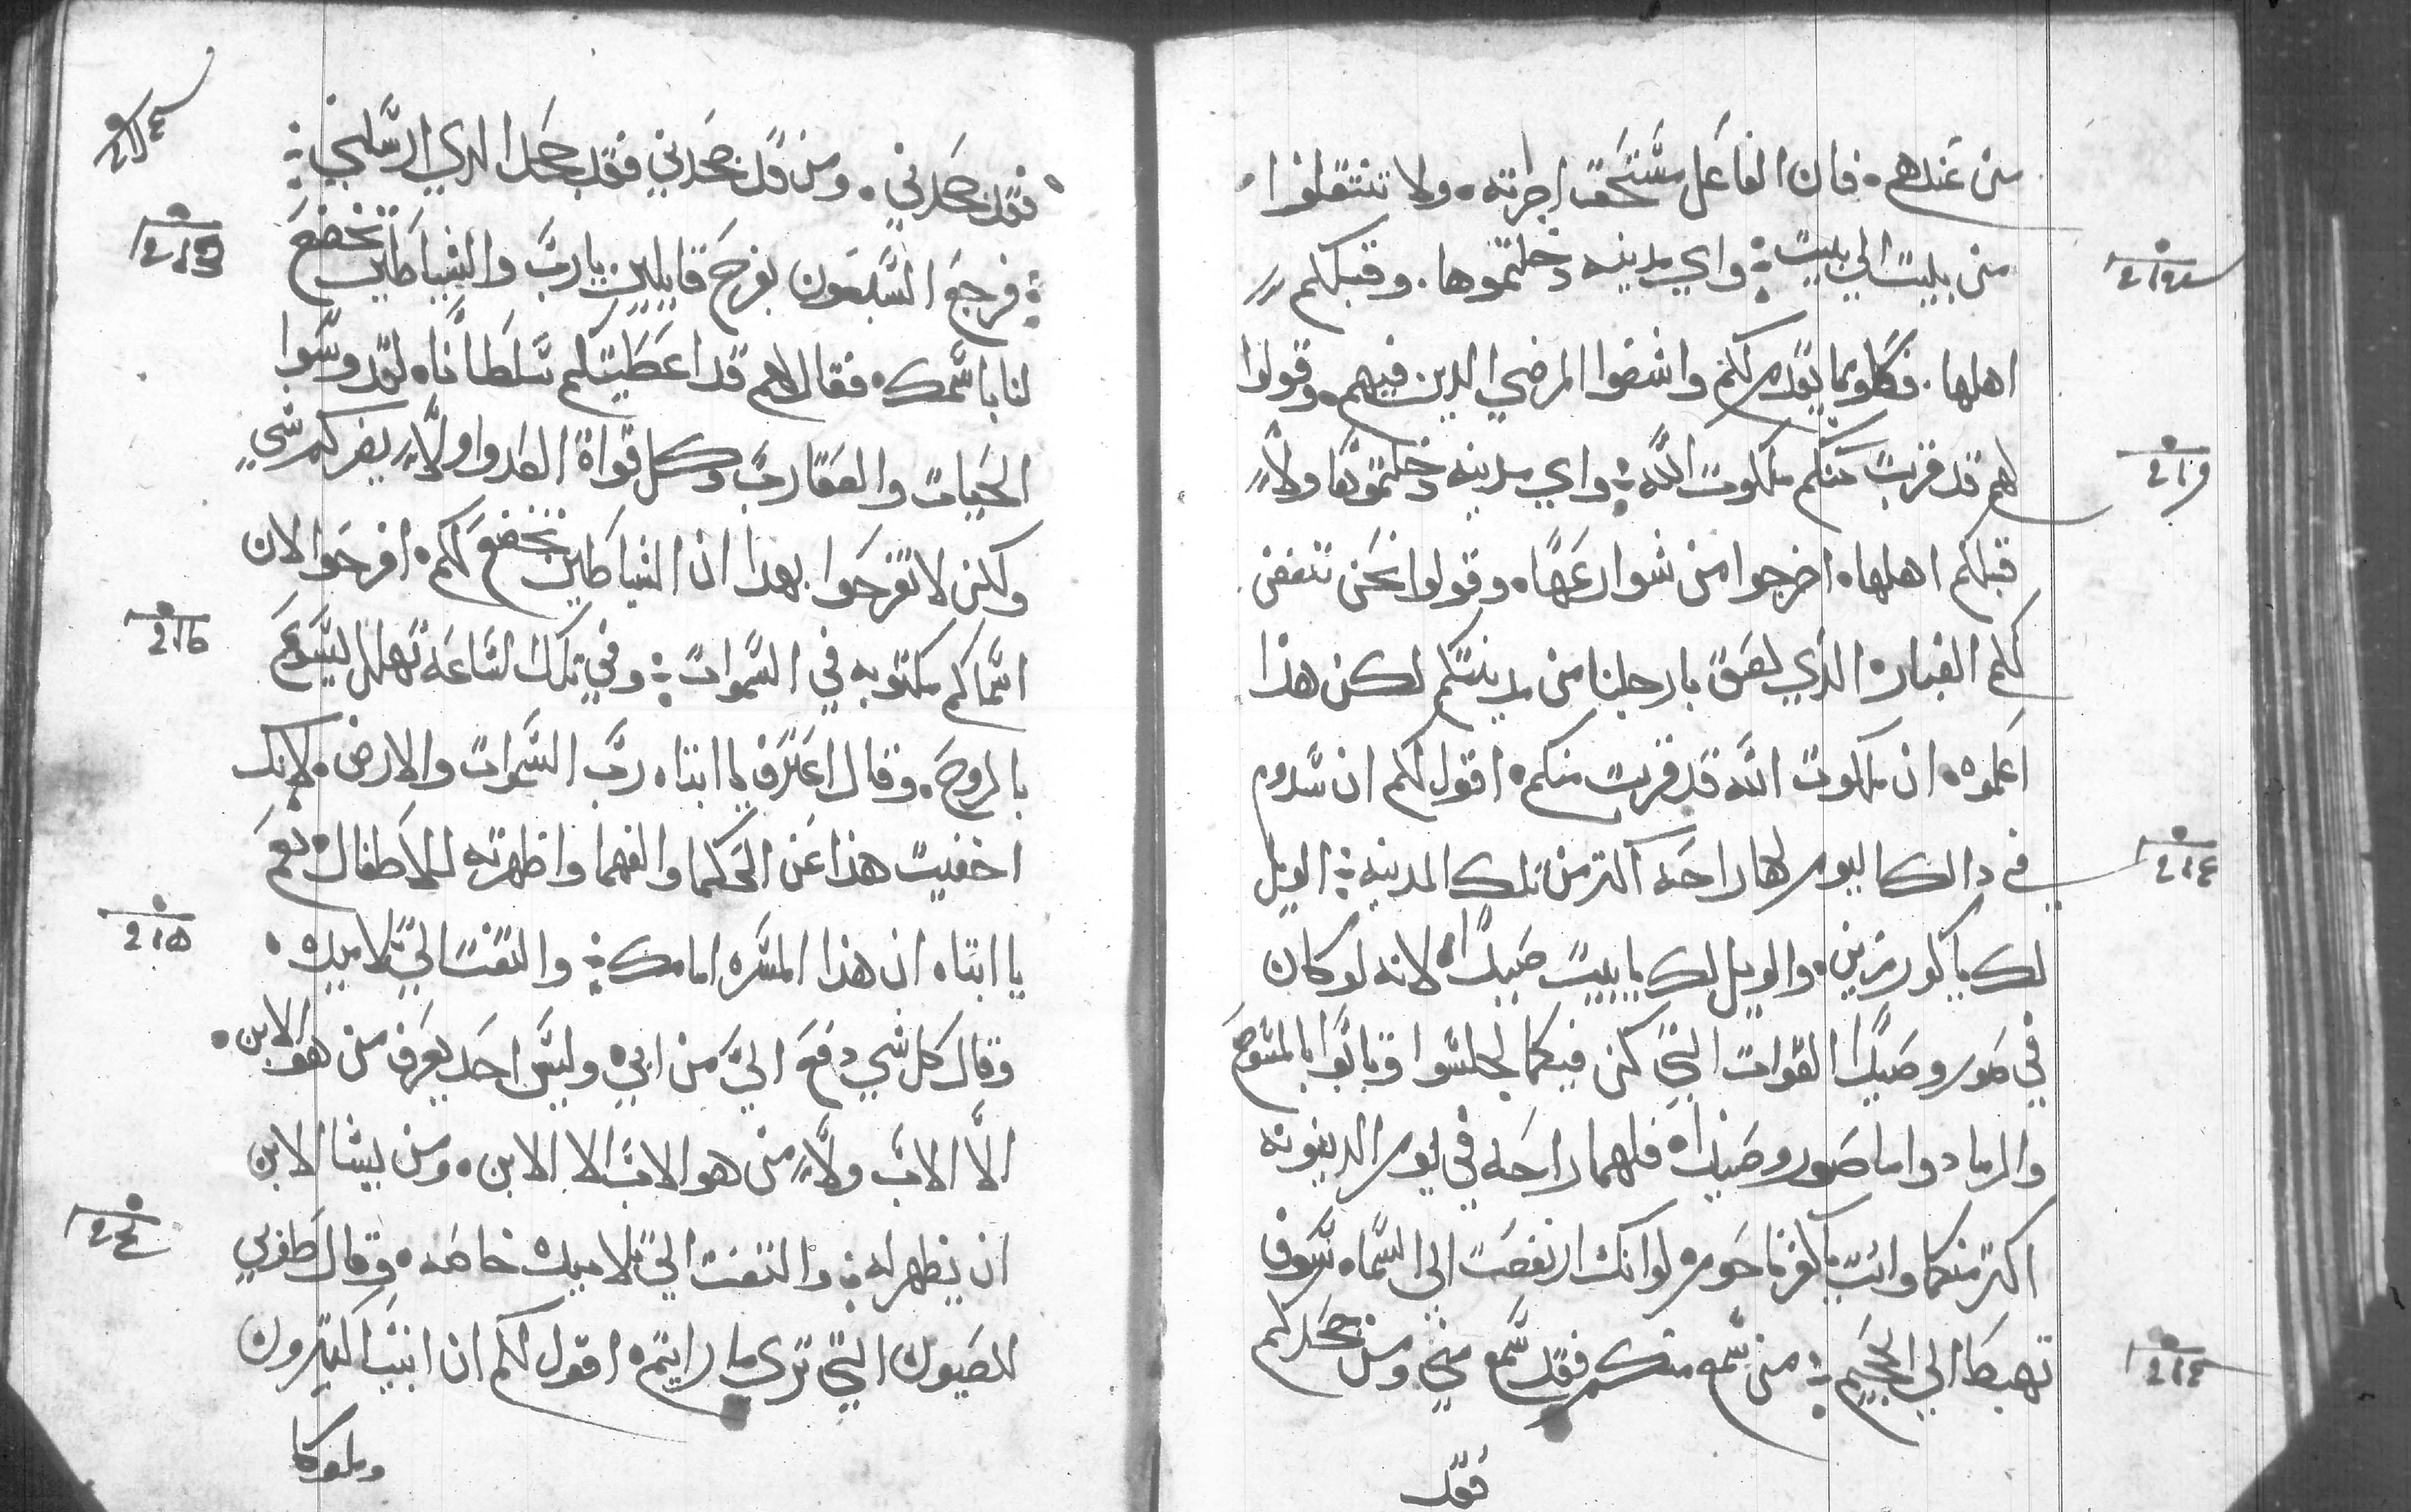 من عندهم. فان الفاعل مستحق اجرته. ولا تنتقلوا
من بيت الي بيت: واي مدينه دخلتموها. وقبلكم
اهلها. فكلو مما يقدم لكم واشفوا المرضي الدين فيهم. وقولوا
لهم قد قربت منكم ملكوت الله: واي مدينه دخلتموها ولا
قبلكم اهلها. اخرجوا من شوارعها. وقولوا نحن ننفض
لكم الغبار الذي لصق بارجلنا من مدينتكم لكن هذا
اعلموه. ان ملكوت الله قد قربت منكم. اقول لكم ان سدوم
في دالك اليوم لها راحه اكتر من تلك المدينه: الويل
لك يا كورزين. والويل لك يا بيت صيدا. لانه لو كان
في صور وصيدا القوات التي كن فيكما لجلسوا وتابوا بالمسوح
والرماد واما صور وصيدا. فلهما راحه في يوم الدينونه
اكتر منكما وانت يا كفرناحوم لو انك ارتفعت الى السماء سوف
تهبط الي الجحيم: من سمع منكم فقد سمع مني ومن جحدكم
فقد
فقد جحدني. ومن قد جحدني فقد جحد الدي ارسلني:
فرجع السبعون بفرح قايلين يارب والشياطين تخضع
لنا باسمك. فقال لهم قد اعطيتكم سلطانا. لتدوسوا
الحيات والعقارب وكل قواة العدوا ولا يضركم شي
ولكن لا تفرحوا بهدا ان الشياطين تخضع لكم. افرحوا لان
اسماكم مكتوبه في السموات: وفي تلك الساعه تهلل يسوع
بالروح. وقال اعترف لك يا ابتاه رب السموات والارض. لانك
اخفيت هذا عن الحكما والفهما واظهرته للاطفال. نعم
يا ابتاه ان هذا المسره امامك: والتفت الي تلاميده.
وقال كل شي دفع الي من ابي. وليس احد يعرف من هو الابن.
الا الاب ولا من هو الاب الا الابن. ومن يشا الابن
ان يظهر له: والتفت الي تلاميده خاصه. وقال طوبي
للعيون التي ترى ما رايتم. اقول لكم ان انبيا كتيرون
وملوكا